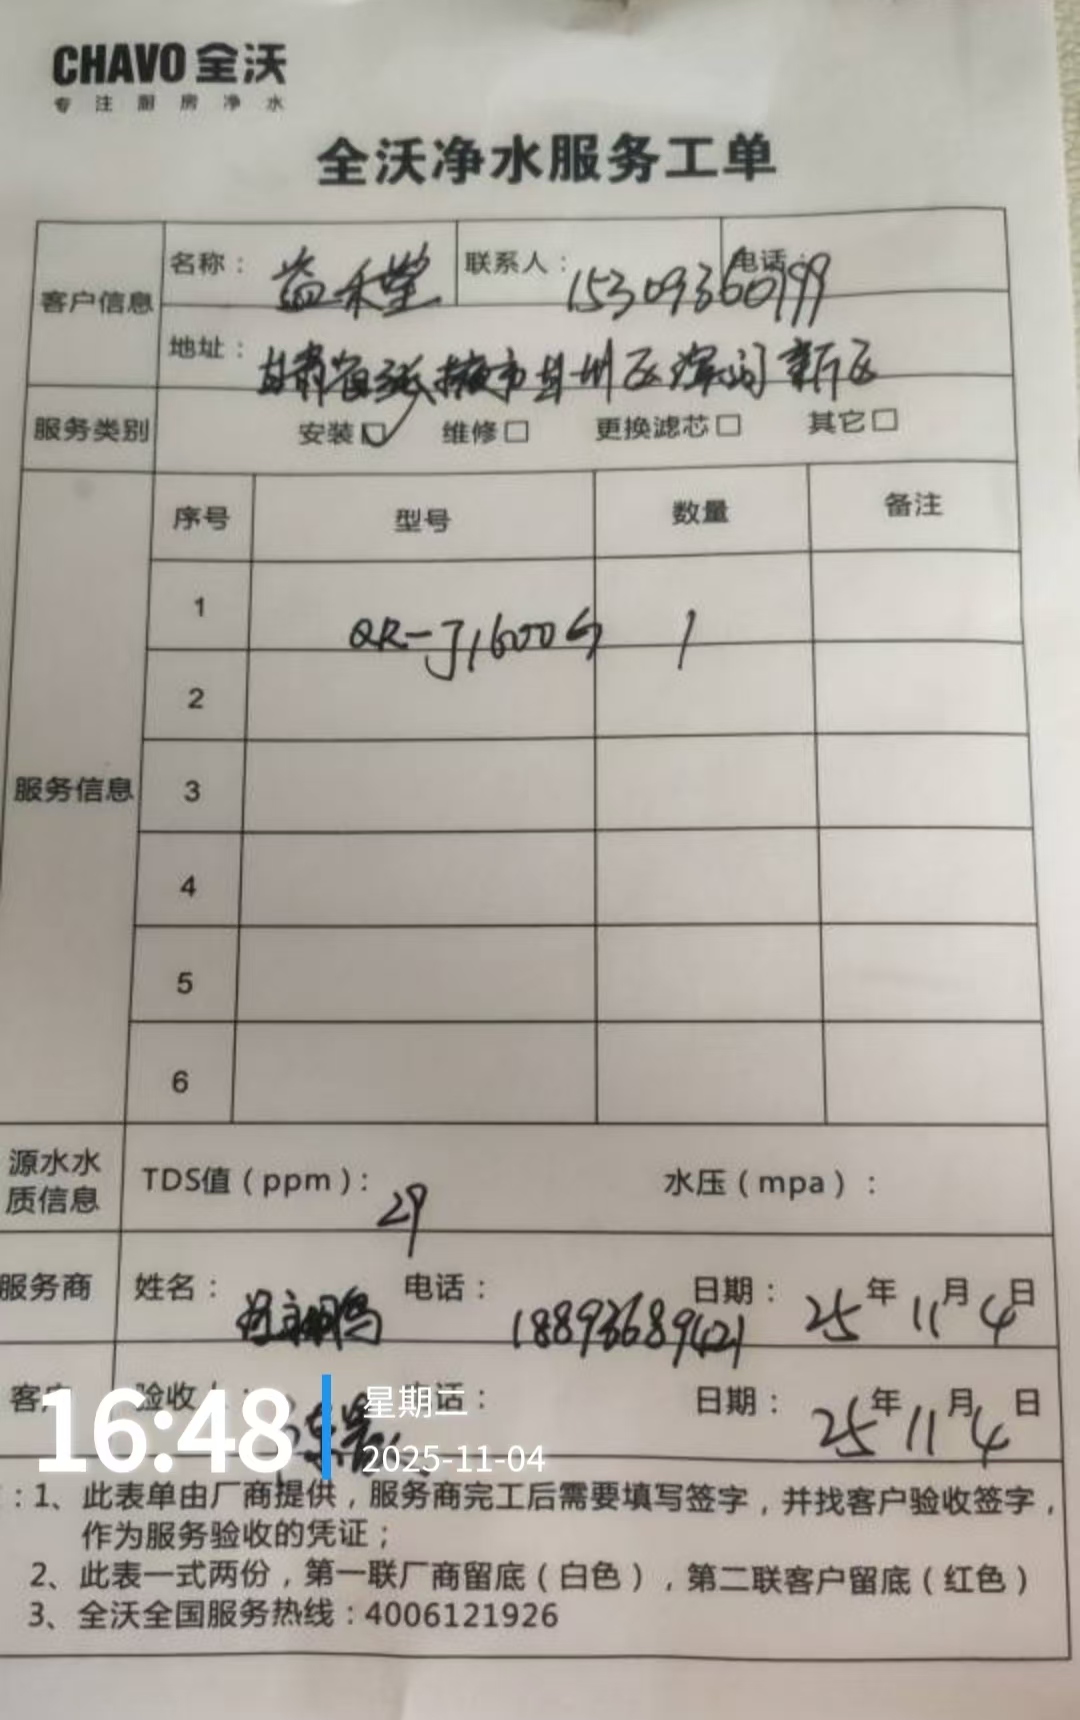 CHAVO 全沃
专注厨房净水
全沃净水服务工单
客户信息
名称： 益禾堂 联系人： 15309360199 电话：
地址： 甘肃省张掖市甘州区滨河新区
服务类别 安装☑ 维修□ 更换滤芯□ 其它□
服务信息
序号 型号 数量 备注
1 QR-J1600G 1
2
3
4
5
6
源水水质信息 TDS值（ppm）： 29 水压（mpa）：
服务商 姓名： 电话： 18893689421 日期： 25年11月4日
客户 验收人： 电话： 日期： 25年11月4日
16:48 星期二
2025-11-04
：1、此表单由厂商提供，服务商完工后需要填写签字，并找客户验收签字，
作为服务验收的凭证；
2、此表一式两份，第一联厂商留底（白色），第二联客户留底（红色）
3、全沃全国服务热线：4006121926